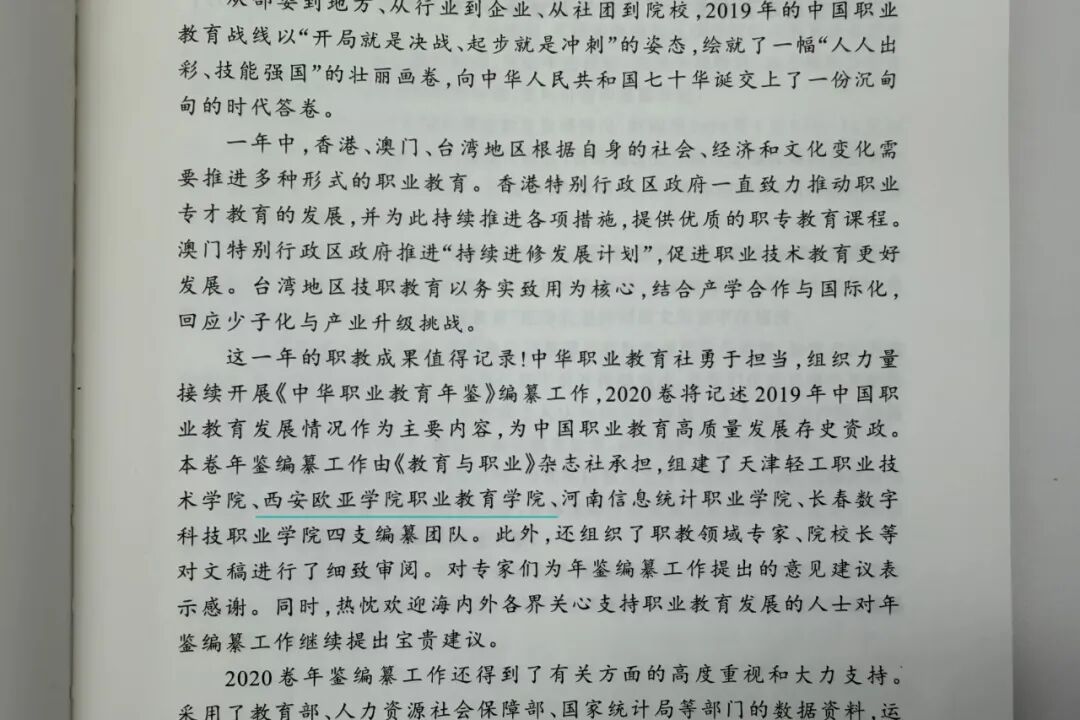 从部委到地方、从行业到企业、从社团到院校,2019年的中国职业
教育战线以“开局就是决战、起步就是冲刺”的姿态,绘就了一幅“人人出
彩、技能强国”的壮丽画卷,向中华人民共和国七十华诞交上了一份沉甸
甸的时代答卷。
一年中,香港、澳门、台湾地区根据自身的社会、经济和文化变化需
要推进多种形式的职业教育。香港特别行政区政府一直致力推动职业
专才教育的发展,并为此持续推进各项措施,提供优质的职专教育课程。
澳门特别行政区政府推进“持续进修发展计划”,促进职业技术教育更好
发展。台湾地区技职教育以务实致用为核心,结合产学合作与国际化,
回应少子化与产业升级挑战。
这一年的职教成果值得记录!中华职业教育社勇于担当,组织力量
接续开展《中华职业教育年鉴》编纂工作,2020卷将记述2019年中国职
业教育发展情况作为主要内容,为中国职业教育高质量发展存史资政。
本卷年鉴编纂工作由《教育与职业》杂志社承担,组建了天津轻工职业技
术学院、西安欧亚学院职业教育学院、河南信息统计职业学院、长春数字
科技职业学院四支编纂团队。此外,还组织了职教领域专家、院校长等
对文稿进行了细致审阅。对专家们为年鉴编纂工作提出的意见建议表
示感谢。同时,热忱欢迎海内外各界关心支持职业教育发展的人士对年
鉴编纂工作继续提出宝贵建议。
2020卷年鉴编纂工作还得到了有关方面的高度重视和大力支持。
采用了教育部、人力资源社会保障部、国家统计局等部门的数据资料,运